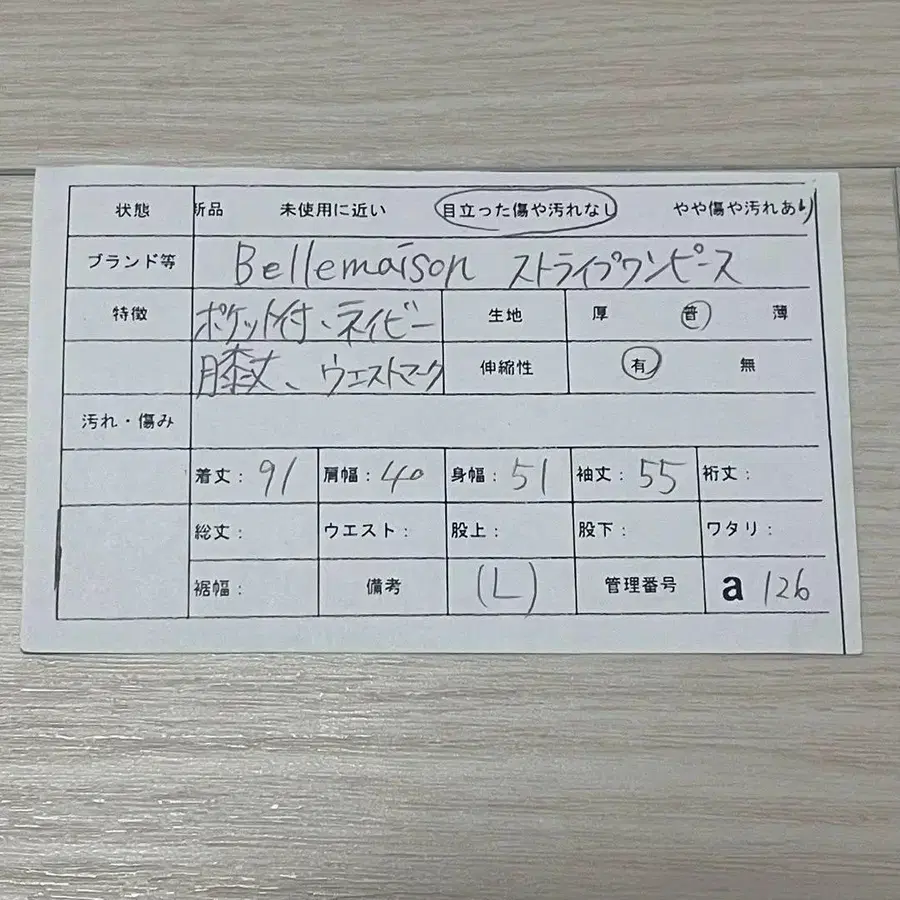 状態 新品 未使用に近い 目立った傷や汚れなし やや傷や汚れあり
ブランド等 Bellemaison ストライプワンピース
特徴 ポケット付、ネイビー 生地 厚 普 薄
膝丈、ウエストマーク 伸縮性 有 無
汚れ・傷み
着丈: 91 肩幅: 40 身幅: 51 袖丈: 55 裄丈:
総丈: ウエスト: 股上: 股下: ワタリ:
裾幅: 備考 (L) 管理番号 a 126